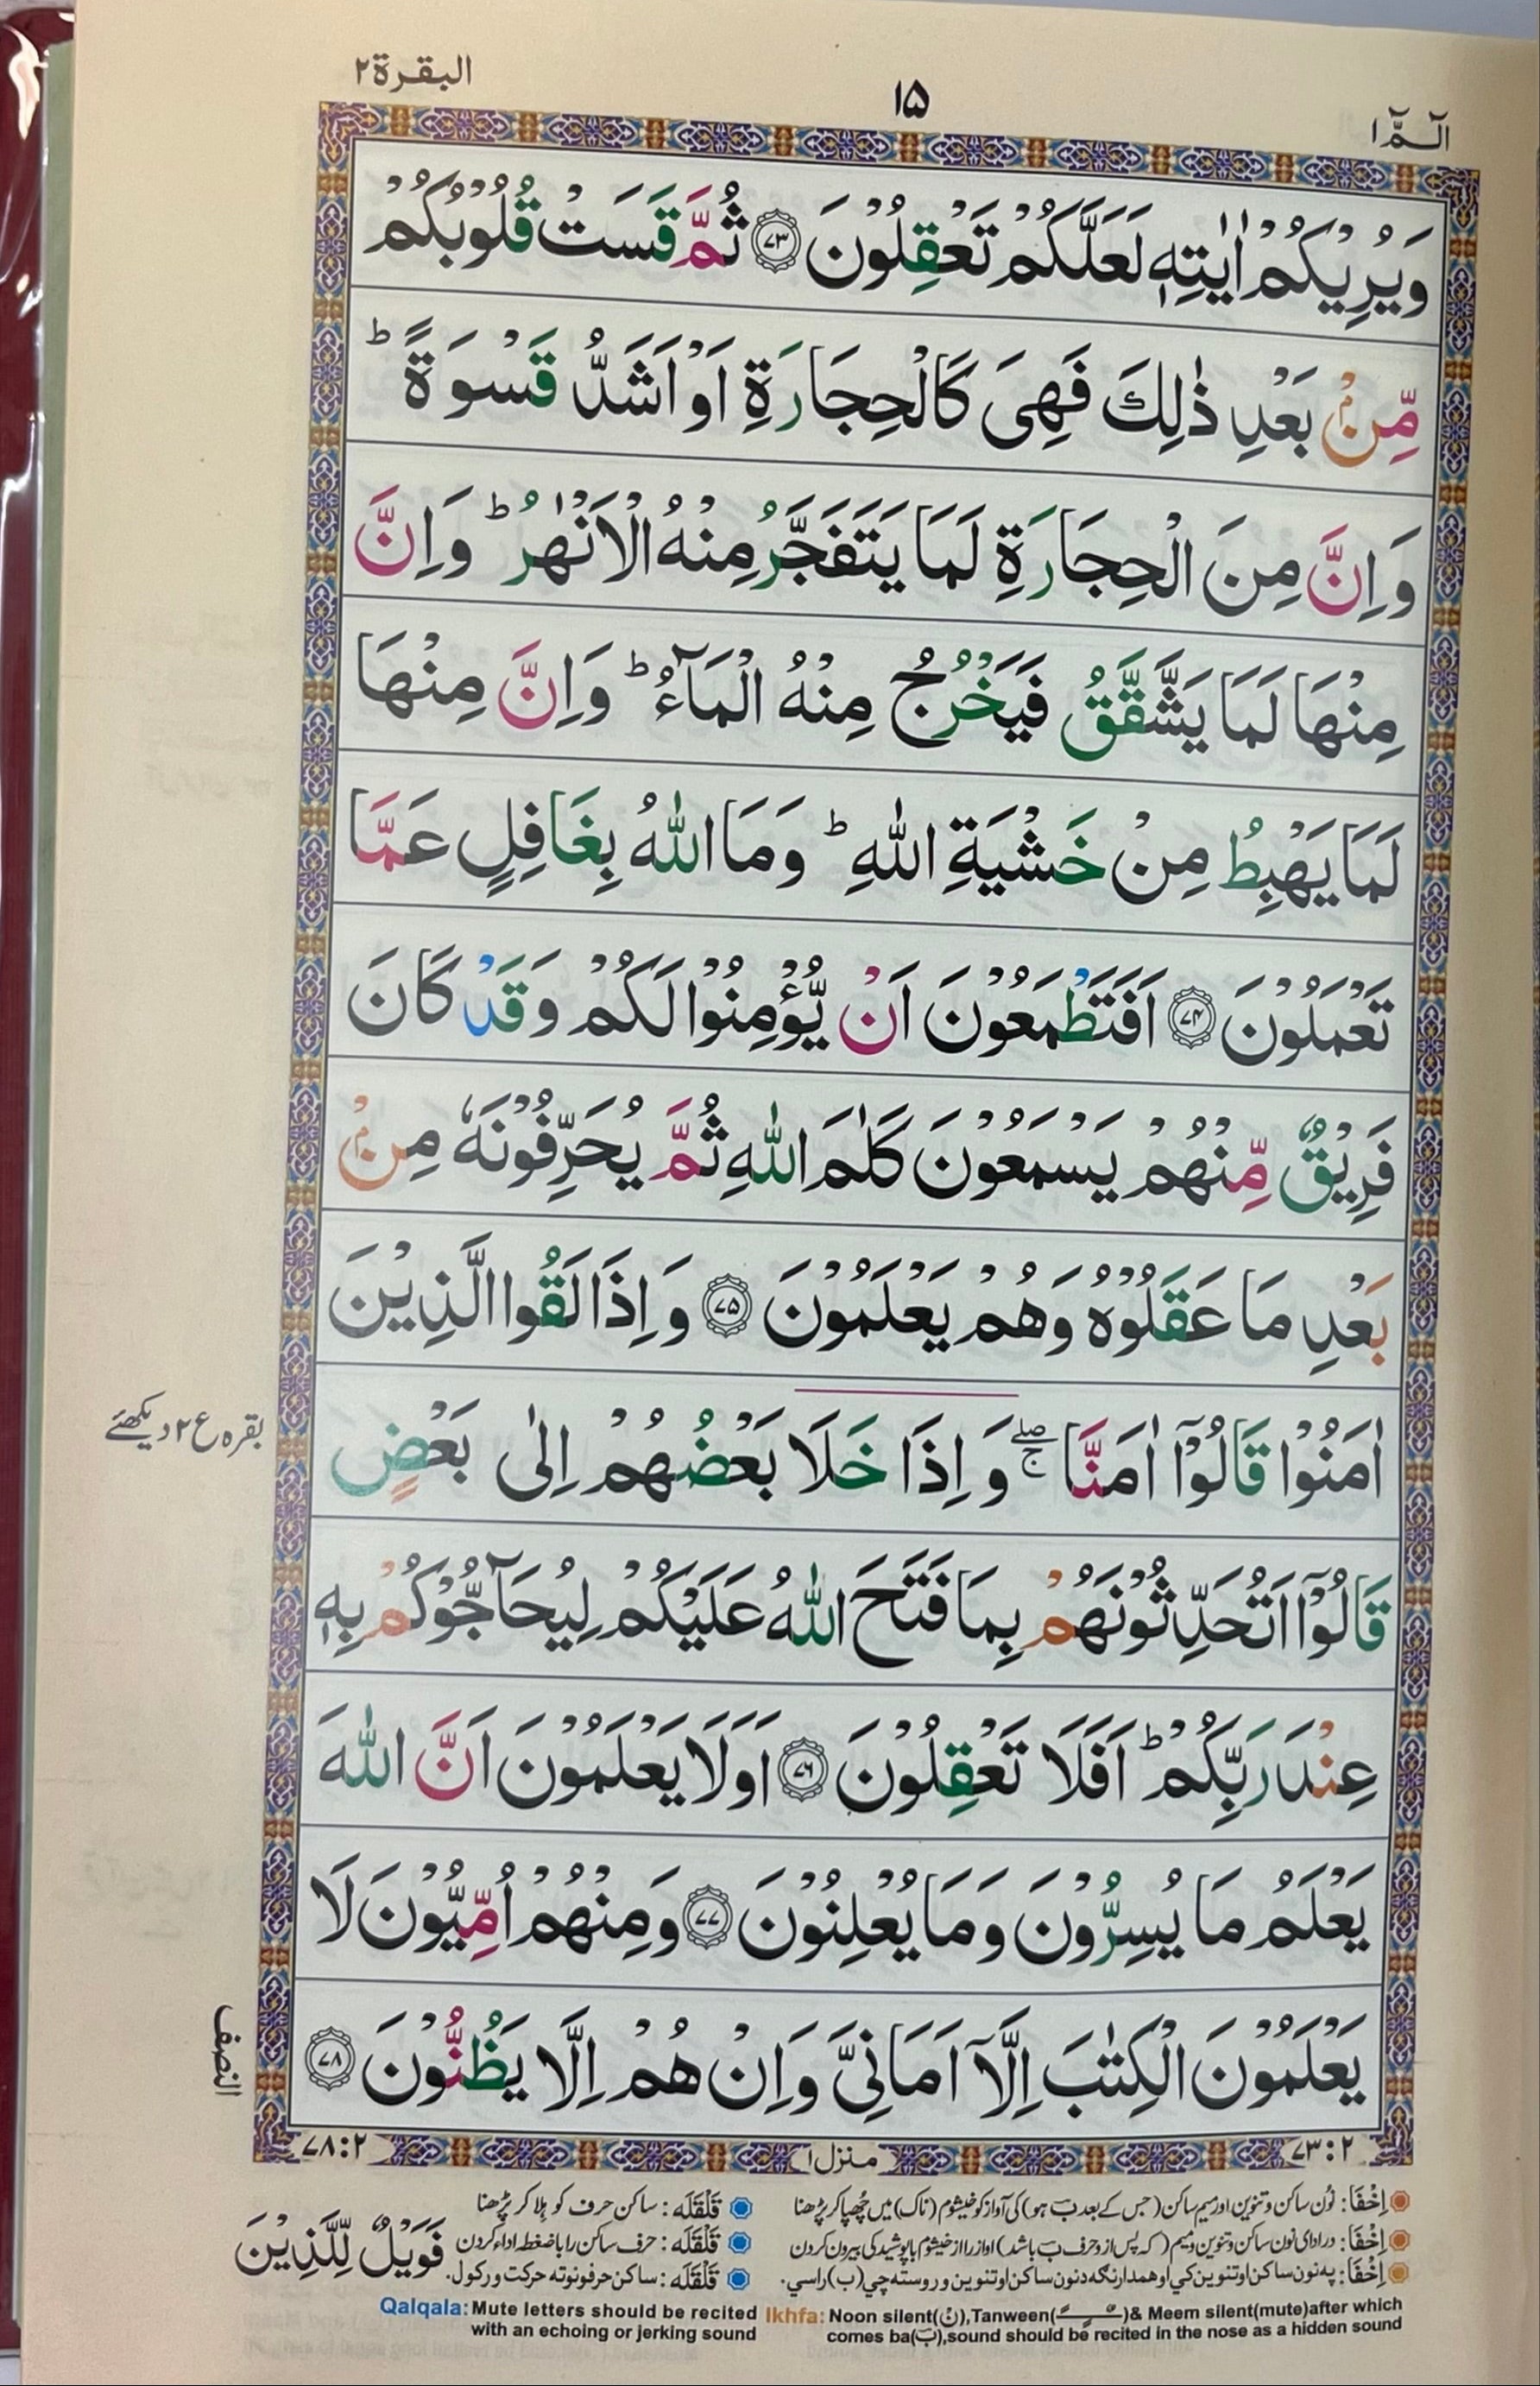 الٓـمّٓ ١
١۵
البقرة ٢
وَيُرِيْكُمْ اٰيٰتِهٖ لَعَلَّكُمْ تَعْقِلُوْنَ ﴿٧٣﴾ ثُمَّ قَسَتْ قُلُوْبُكُمْ
مِّنْۢ بَعْدِ ذٰلِكَ فَهِىَ كَالْحِجَارَةِ اَوْ اَشَدُّ قَسْوَةً ؕ
وَاِنَّ مِنَ الْحِجَارَةِ لَمَا يَتَفَجَّرُ مِنْهُ الْاَنْهٰرُ ؕ وَاِنَّ
مِنْهَا لَمَا يَشَّقَّقُ فَيَخْرُجُ مِنْهُ الْمَآءُ ؕ وَاِنَّ مِنْهَا
لَمَا يَهْبِطُ مِنْ خَشْيَةِ اللّٰهِ ؕ وَمَا اللّٰهُ بِغَافِلٍ عَمَّا
تَعْمَلُوْنَ ﴿٧٤﴾ اَفَتَطْمَعُوْنَ اَنْ يُّؤْمِنُوْا لَكُمْ وَقَدْ كَانَ
فَرِيْقٌ مِّنْهُمْ يَسْمَعُوْنَ كَلٰمَ اللّٰهِ ثُمَّ يُحَرِّفُوْنَهٗ مِنْۢ
بَعْدِ مَا عَقَلُوْهُ وَهُمْ يَعْلَمُوْنَ ﴿٧۵﴾ وَاِذَا لَقُوا الَّذِيْنَ
اٰمَنُوْا قَالُوْٓا اٰمَنَّا ۚۖ وَاِذَا خَلَا بَعْضُهُمْ اِلٰى بَعْضٍ
بقرہ ع ٢ دیکھئے
قَالُوْٓا اَتُحَدِّثُوْنَهُمْ بِمَا فَتَحَ اللّٰهُ عَلَيْكُمْ لِيُحَآجُّوْكُمْ بِهٖ
عِنْدَ رَبِّكُمْ ؕ اَفَلَا تَعْقِلُوْنَ ﴿٧٦﴾ اَوَلَا يَعْلَمُوْنَ اَنَّ اللّٰهَ
يَعْلَمُ مَا يُسِرُّوْنَ وَمَا يُعْلِنُوْنَ ﴿٧٧﴾ وَمِنْهُمْ اُمِّيُّوْنَ لَا
يَعْلَمُوْنَ الْكِتٰبَ اِلَّآ اَمَانِىَّ وَاِنْ هُمْ اِلَّا يَظُنُّوْنَ ﴿٧٨﴾
النصف
٧٣:٢
منزل ١
٧٨:٢
اِخْفَا: نُون ساکن و تنوین اور میم ساکن (جس کے بعد بَ ہو) کی آواز کو خیشوم (ناک) میں چُھپا کر پڑھنا
اِخْفَا: در ادای نون ساکن و تنوین و میم (که پس از و حرف بَ باشد) اواز را از خیشوم با پوشیدگی بیرون کردن
اِخْفَا: په نون ساکن او تنوین کي او همدارنګه د نون ساکن او تنوین وروسته چي (ب) راسي.
قَلْقَلَه: ساکن حرف کو ہِلا کر پڑھنا
قَلْقَلَه: حرف ساکن را با ضغط اداء کردن
قَلْقَلَه: ساکن حرفونو ته حرکت ورکول.
فَوَيْلٌ لِّلَّذِيْنَ
Qalqala: Mute letters should be recited
with an echoing or jerking sound
Ikhfa: Noon silent(نْ),Tanween(ـًـٍـٌ)& Meem silent(mute)after which
comes ba(بَ),sound should be recited in the nose as a hidden sound